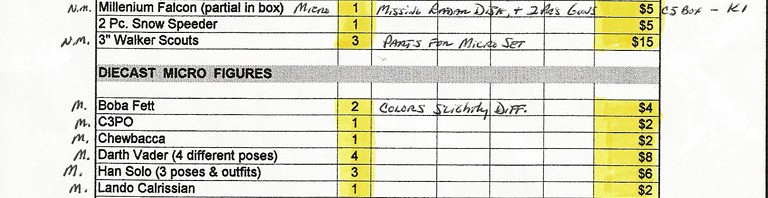 Millenium Falcon (partial in box) Micro 1 Missing Radar Disk, + 2 Pcs Guns $5 C5 Box - K1
2 Pc. Snow Speeder 1 $5
N.M. 3" Walker Scouts 3 Parts For Micro Set $15
DIECAST MICRO FIGURES
M. Boba Fett 2 Colors Slightly Diff. $4
M. C3PO 1 $2
M. Chewbacca 1 $2
M. Darth Vader (4 different poses) 4 $8
M. Han Solo (3 poses & outfits) 3 $6
M. Lando Calrissian 1 $2